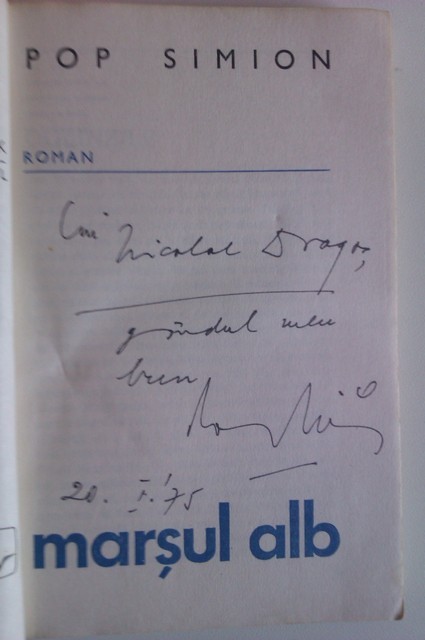 POP SIMION
ROMAN
Lui Nicolae Dragoș,
gîndul meu
bun
20. I. '75
marșul alb